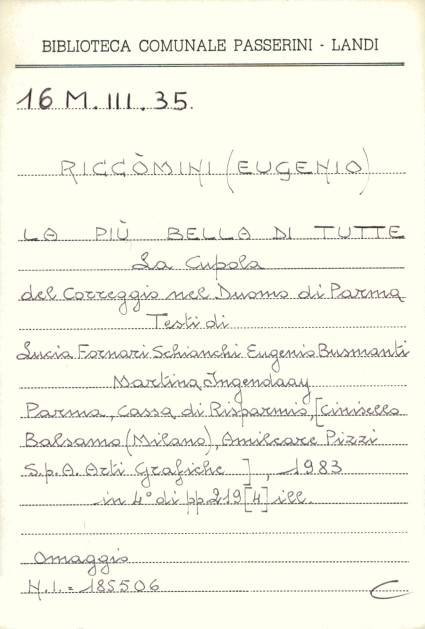 BIBLIOTECA COMUNALE PASSERINI - LANDI
16 M. III. 35.
RICCÒMINI (EUGENIO)
LA PIÙ BELLA DI TUTTE
La Cupola
del Correggio nel Duomo di Parma
Testi di
Lucia Fornari Schianchi Eugenio Busmanti
Martina Ingendaay
Parma, Cassa di Risparmio, [Cinisello
Balsamo (Milano), Amilcare Pizzi
S.p.A. Arti Grafiche ] , 1983
in 4° di pp 219 [4] ill.
Omaggio
N.I. = 185506
C